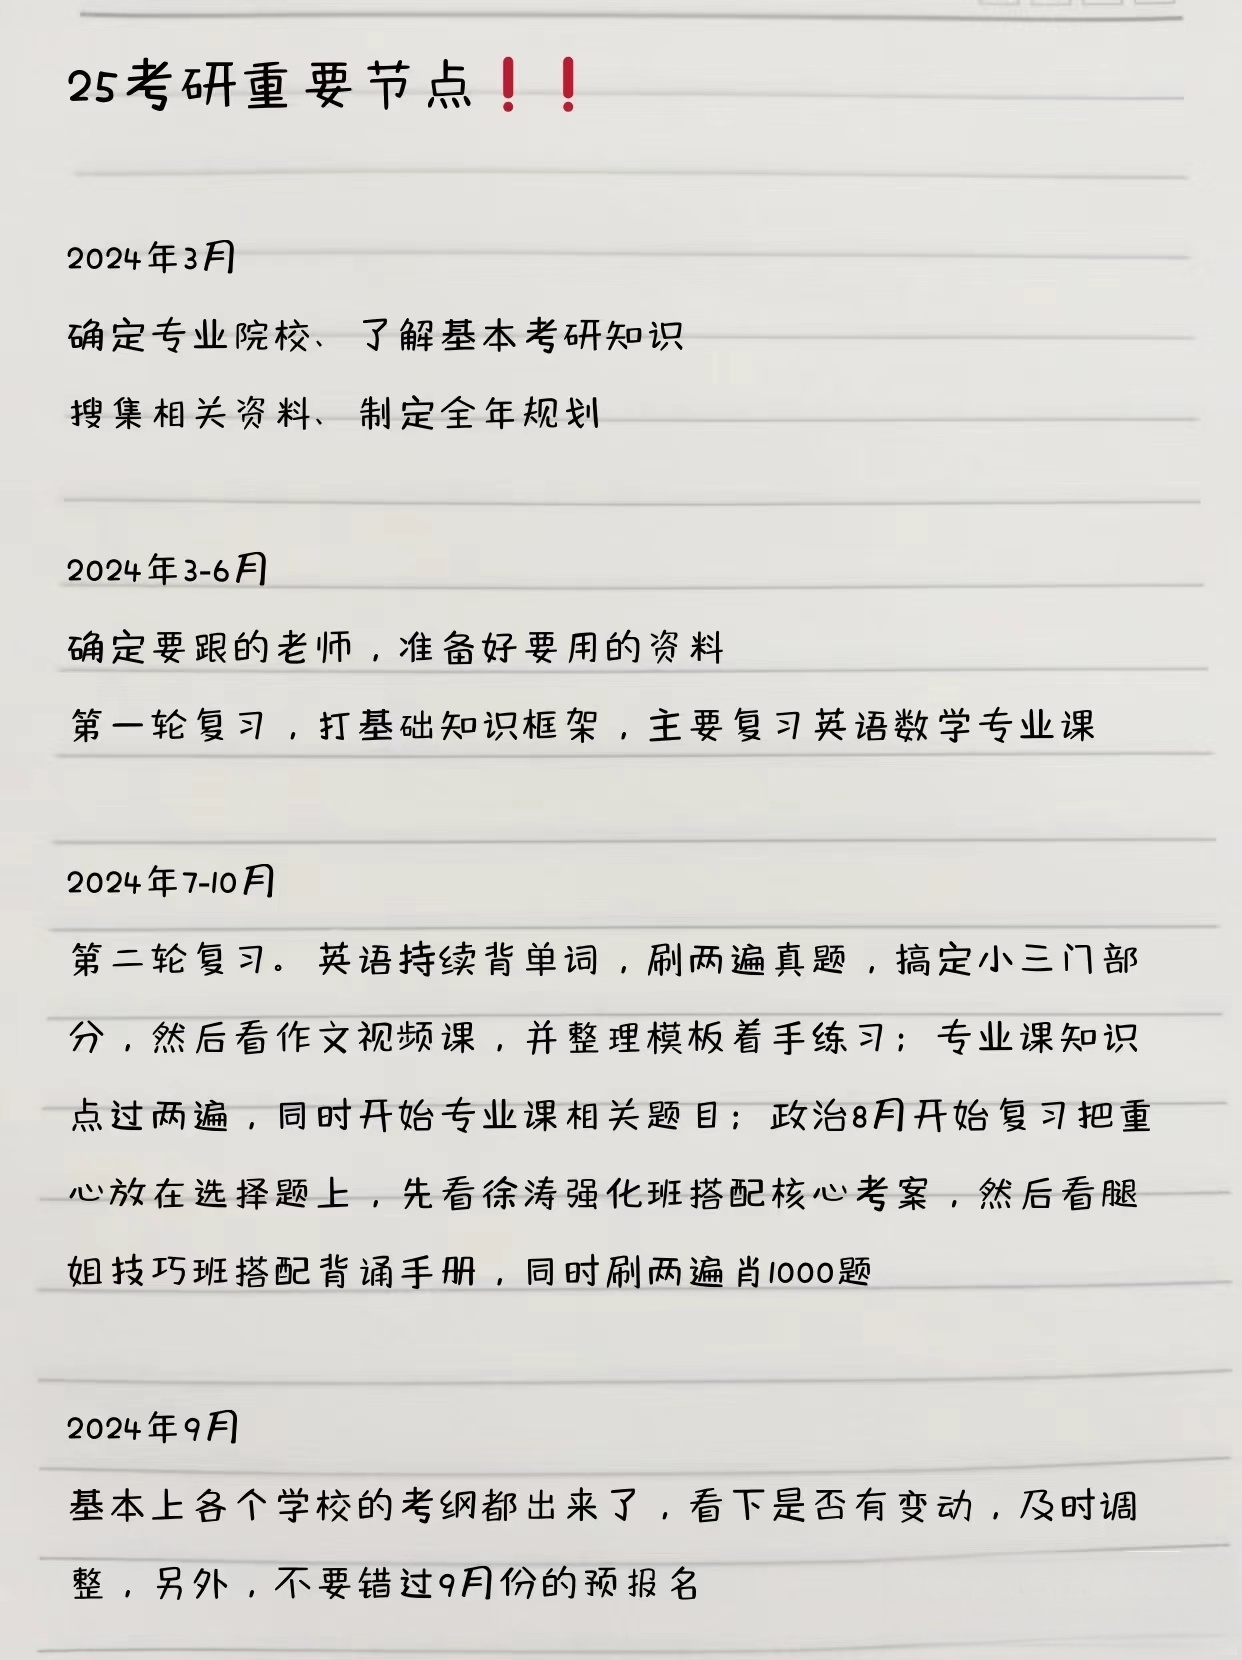 25考研重要节点❗❗
2024年3月
确定专业院校、了解基本考研知识
搜集相关资料、制定全年规划
2024年3-6月
确定要跟的老师，准备好要用的资料
第一轮复习，打基础知识框架，主要复习英语数学专业课
2024年7-10月
第二轮复习。英语持续背单词，刷两遍真题，搞定小三门部
分，然后看作文视频课，并整理模板着手练习；专业课知识
点过两遍，同时开始专业课相关题目；政治8月开始复习把重
心放在选择题上，先看徐涛强化班搭配核心考案，然后看腿
姐技巧班搭配背诵手册，同时刷两遍肖1000题
2024年9月
基本上各个学校的考纲都出来了，看下是否有变动，及时调
整，另外，不要错过9月份的预报名